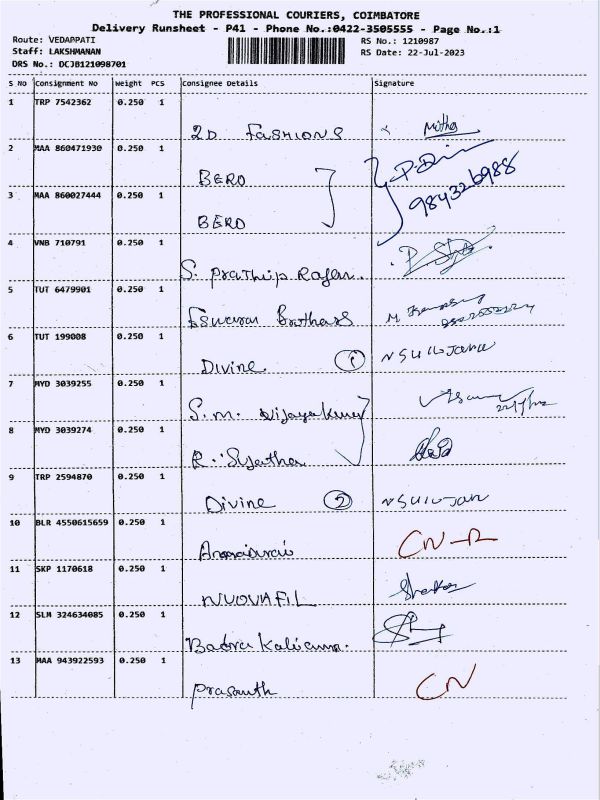 THE PROFESSIONAL COURIERS, COIMBATORE
Delivery Runsheet - P41 - Phone No.:0422-3505555 - Page No.:1
Route: VEDAPPATI RS No.: 1210987
Staff: LAKSHMANAN RS Date: 22-Jul-2023
DRS No.: DCJB121098701
S No Consignment No Weight PCS Consignee Details Signature
1 TRP 7542362 0.250 1
2D FASHIONS
2 MAA 860471930 0.250 1
BERO
3 MAA 860027444 0.250 1
BERO
4 VNB 710791 0.250 1
S. Prathip Rajan.
5 TUT 6479901 0.250 1
Eswaran Brothers
6 TUT 199008 0.250 1
Divine 1
7 MYD 3039255 0.250 1
S.m. Vijayakumar
8 MYD 3039274 0.250 1
R. Sujatha
9 TRP 2594870 0.250 1
Divine 2
10 BLR 4550615659 0.250 1
CN-R
11 SKP 1170618 0.250 1
NUOVAFIL
12 SLM 324634085 0.250 1
13 MAA 943922593 0.250 1
Prasanth CN